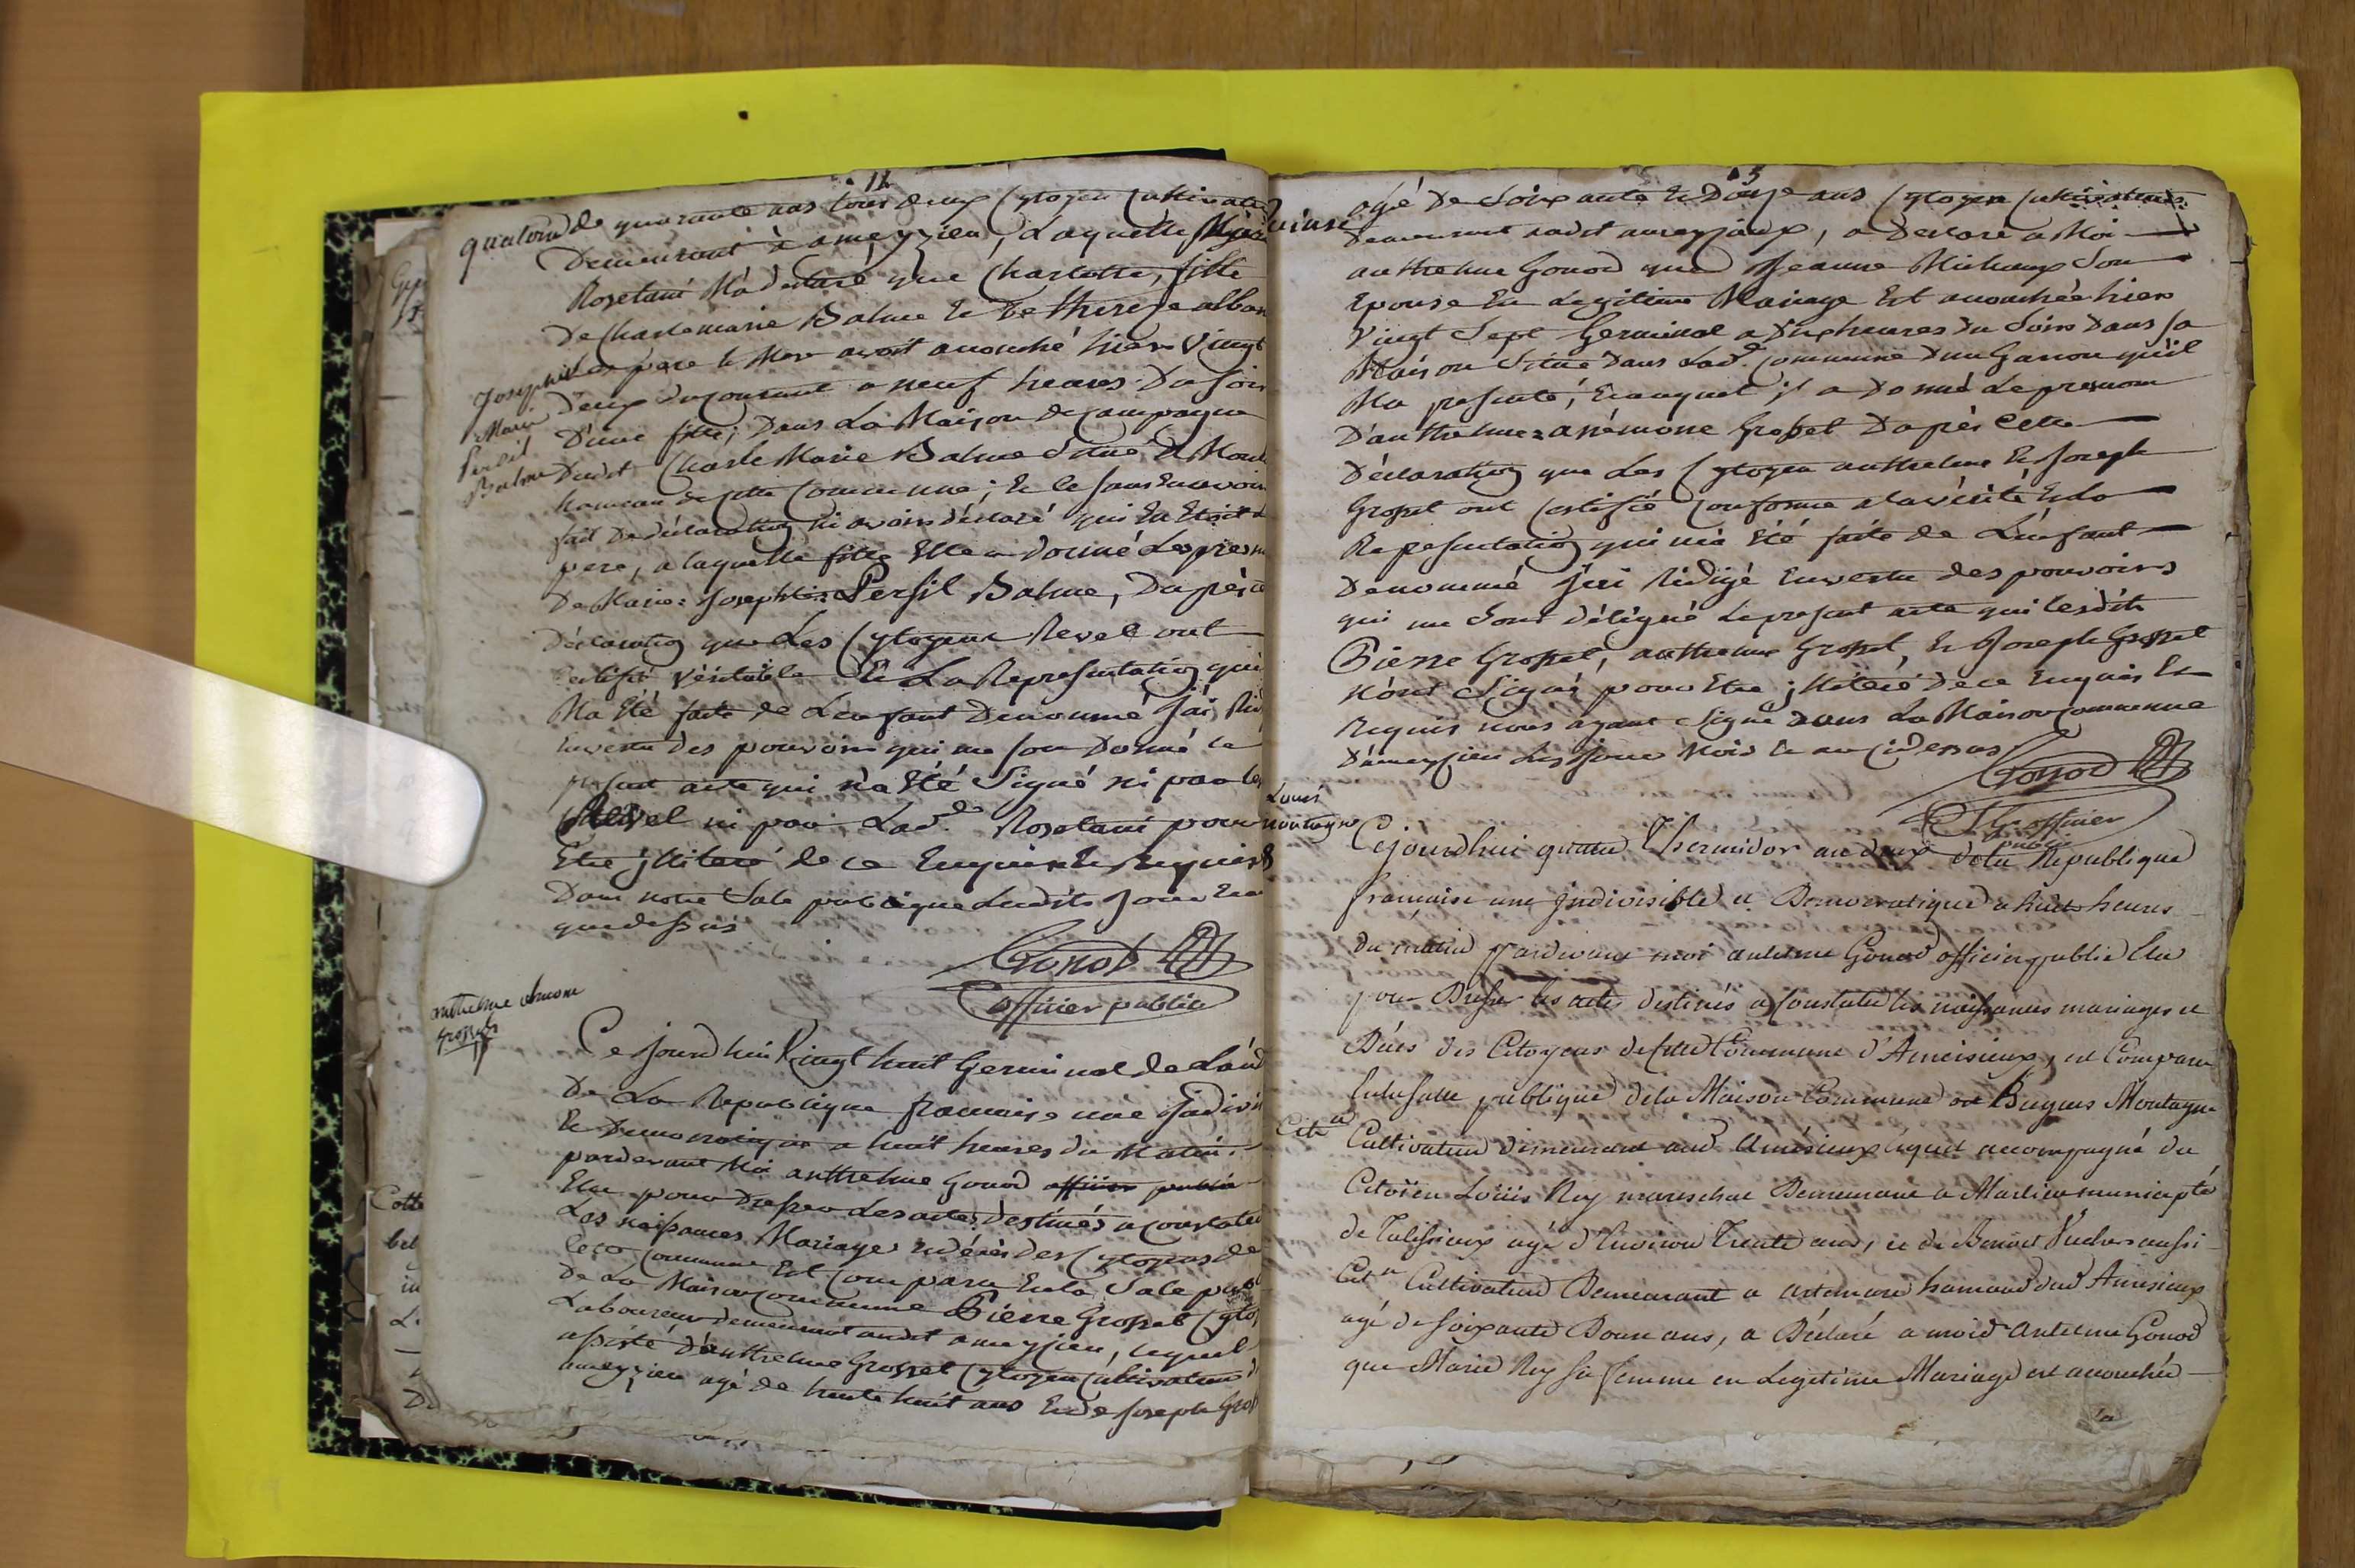 14
quatorze
de quarante ans tous deux Cytoyen Cultivate
Demeurant à ameyzieu, Laquelle
Rosetani M'a déclaré que Charlotte, fille
De Charle marie Balme Et De therese alban
Ses pere Et Mere avoit accouché hier Vingt
Deux du Courant a neuf heures Du soir
D'une fille; Dans La Maison de Campagne
Dudit Charle Marie Balme Situé
hameau de cette Commune; Et le sans En avoir
fait De déclaration ni avoir déclaré qui En Etoit le
pere, a laquelle fille Elle a donné Les pren
De Marie: Josephte: Persil Balme, Daprès
Déclaration que Les Cytoyens Revel ont
Certifié Véritable Et La Representation qui
Ma Eté faite de Lenfant Denommé J'ai
En vertu des pouvoirs qui me sont Donné le
présent acte qui n'a Eté Signé ni par les
Revel ni par Lad.de Rosetani pour
Etre jlliteré de ce Enquis Et Requis
Dans notre Sale publique Lesdits Jour
que dessus
Gonod
officier public
Josephte
Marie
Persil
Balme
anthelme anemone
Grosset
Ce Jourd'hui Vingt huit Germinal de L'an
De La Republique francaise une Jndivi
Et Democratique a huit heures du Matin
pardevant Moi anthelme Gonod officier public
Elu pour Dresser Les actes destinés a Constater
Les naissances Mariages Et décès des Cytoyens de
Cette Commune Est Comparu En la Sale pub
De La Maison Commune Pierre Grosset Cyto
Laboureur demeurant audit ameyzieu, lequel
assisté d'anthelme Grosset Cytoyen Cultivateur
ameyzieu agé de trente huit ans Et de Joseph Gros
15
quinse
agé De Soixante Et Douze ans Cytoyen Cultivateur
Demeurant audit ameyzieux, a Declaré a Moi
anthelme Gonod que Jeanne Michaux Son
Epouse En Legitime Mariage Est accouchée hier
Vingt Sept Germinal a Dix heures Du Soir Dans Sa
Maison Situé Dans Lad.e Commune D'un Garcon qu'il
Ma presenté, Et auquel jl a Donné Le prenom
D'anthelme anémone Grosset Daprès Cette
Déclaration que Les Cytoyen anthelme Et Joseph
Grosset ont Certifié Conforme a la vérité Et La
Representation qui m'a Eté faite de L'enfant
Denommé J'ai Rédigé En vertu des pouvoirs
qui me sont délégué Le present acte que lesdits
Pierre Grosset, anthelme Grosset, Et Joseph Grosset
n'ont Signé pour Etre jlliteré De ce Enquis Et
Requis nous ayant signé dans La Maison Commune
D'ameyzieu Les Jour Mois Et an Cidessus
Gonod
officier
public
Louis
montagne
Cejourd'huy quatre Thermidor an deux dela Republique
française une Jndivisible et Democratique a huit heures
du matin pardevant moi antelme Gonod officier public Elu
pour Dresser les actes destinés a Constater les naissances mariages et
Décés des Citoyens de cette Commune d'Ameisieux, est Comparu
En la salle publique dela Maison Commune Bugues Montagne
Citn
Cultivateur demeurant aud Amésieux lequel accompagné du
Citoïen Loüis Rey mareschal Demeurant a Marlieu municipté
de Talissieux agé d'Environ Trente ans, et de Benoit Vuchey aussi
Citn Cultivateur Demeurant a artemare hameau dud Amesieux
agé de soixante Douze ans, a Déclaré a moid Antelme Gonod
que Marie Rey sa femme en Legitime Mariage est accouchée